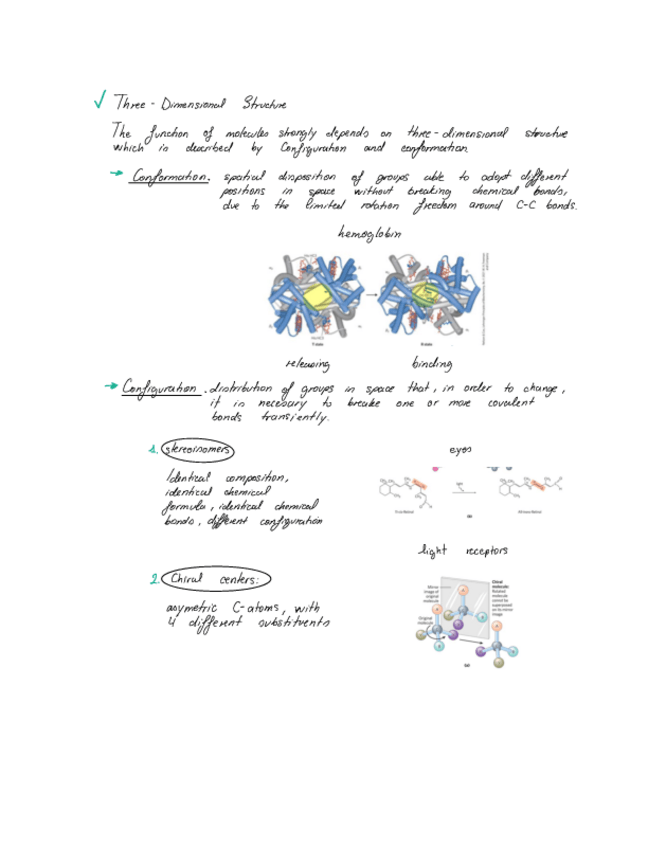 Three - Dimensional Structure
The function of molecules strongly depends on three-dimensional structure
which is described by Configuration and conformation.
→ Conformation. spatial disposition of groups able to adopt different
positions in space without breaking chemical bonds,
due to the limited rotation freedom around C-C bonds.
hemoglobin
T-state
R-state
releasing
binding
→ Configuration. distribution of groups in space that, in order to change,
it is necesary to breake one or more covalent
bonds transiently.
1. stereoisomers
eyes
Identical composition,
identical chemical
formula, identical chemical
bonds, different configuration
light
(a)
light receptors
2. Chiral centers:
asymetric C-atoms, with
4 different substituents
Mirror
image of
original
molecule
Original
molecule
Chiral
molecule:
Rotated
molecule
cannot be
superposed
on its mirror
image
(a)